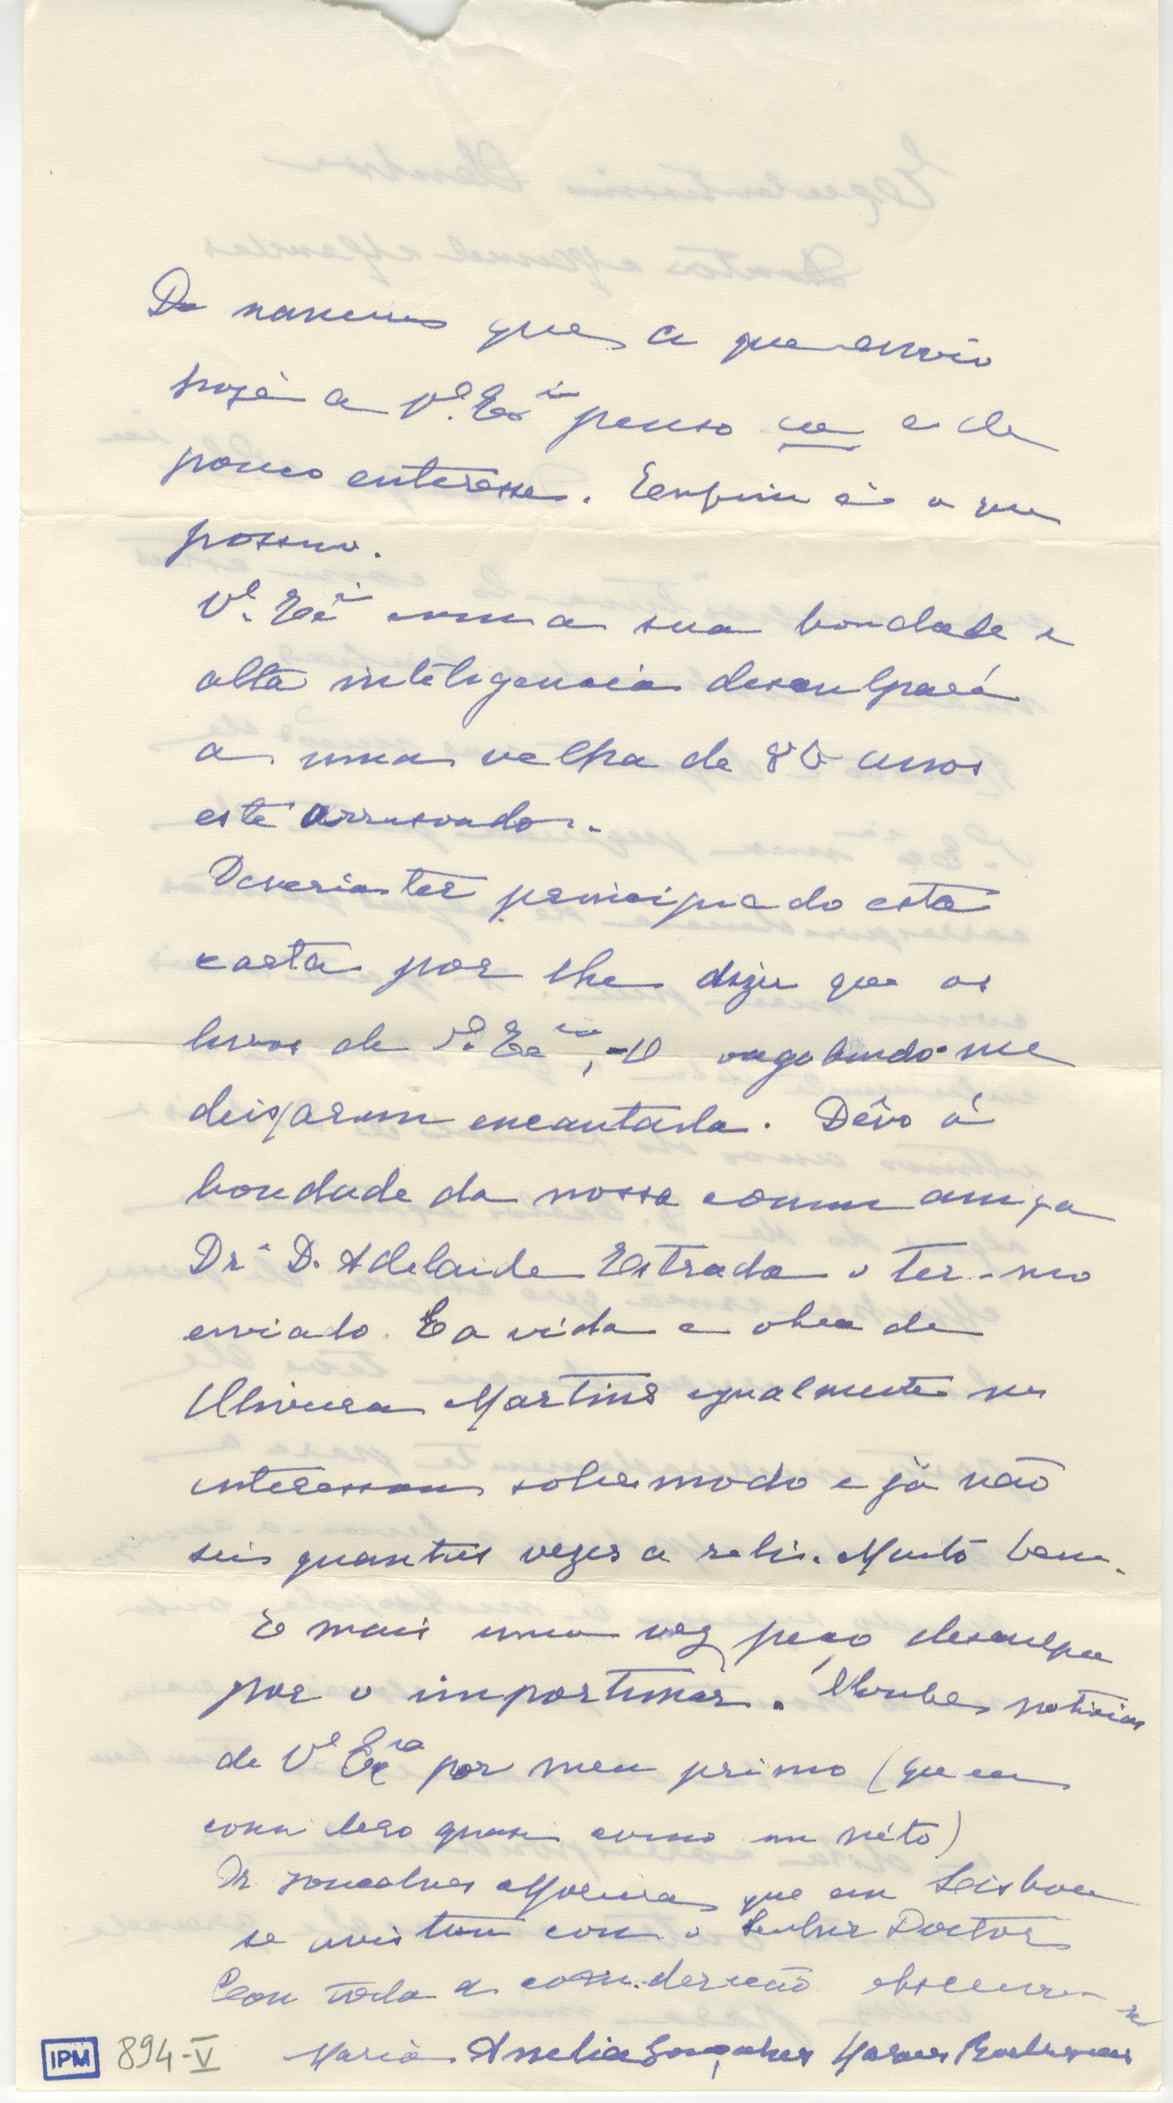 De maneira que a que envio
hoje a V.ª Ex.ª penso ser a de
pouco enteresse. Emfim é o que
possuo.
V.ª Ex.ª com a sua bondade e
alta inteligencia desculpará
a uma velha de 80 anos
este arrasoado.
Deveria ter principiado esta
carta por lhe dizer que os
livros de V.ª Ex.ª, vagabundo-me
deixaram encantada. Dêvo á
bondade da nossa comum amiga
Drª D. Adelaide Estrada o ter-mo
enviado. E a vida e obra de
Oliveira Martins egualmente me
interessou sobremodo e já não
sei quantas vezes a reli. Muito bem.
E mais uma vez peço desculpa
por o importunar. Soube noticias
de V.ª Ex.ª por meu primo (quem
considero quasi como um néto)
Dr Gonçalves Moreira que em Lisboa
se avistou com o Senhor Doctor
Com toda a consideração
Maria Amelia Gonçalves
IPM 894-V